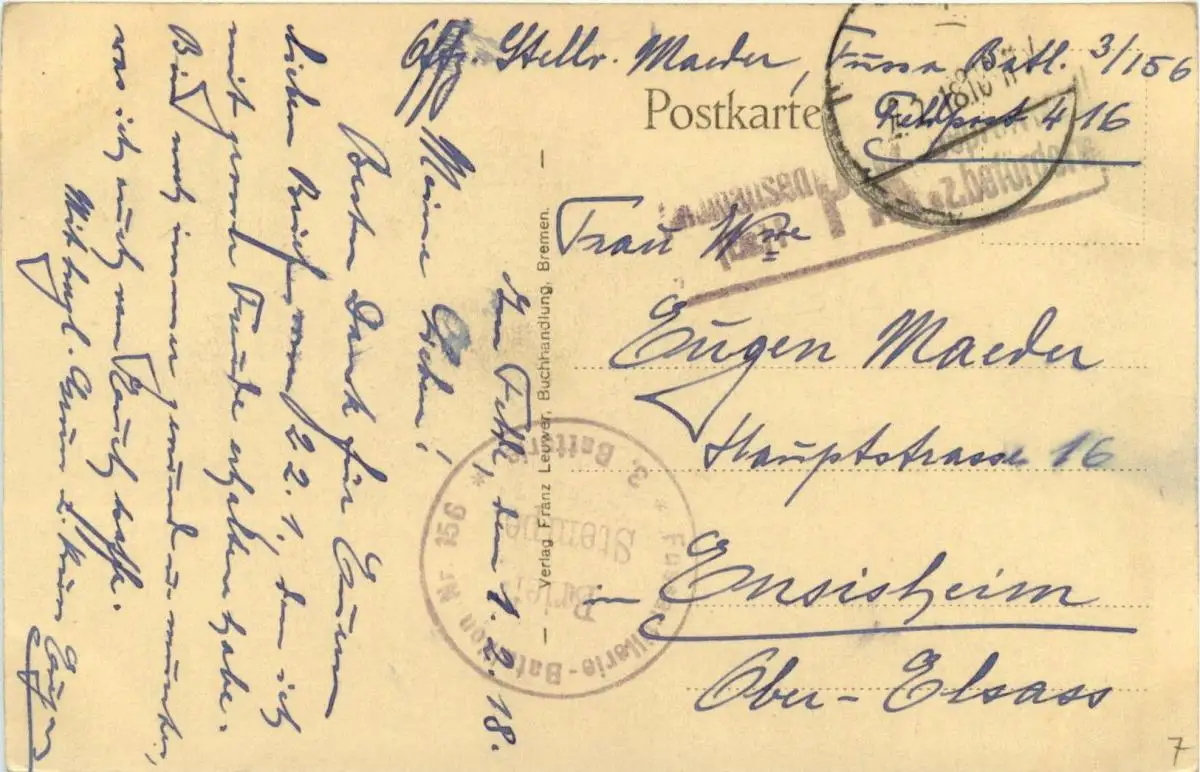 Offz. Stellv. Maeder, Fussa Batl. 3/156
Feldpost 416
Postkarte
Frau Wwe
Eugen Maeder
Hauptstrasse 16
in Ensisheim
Ober-Elsass
Im Felde, den 1.2.18.
Meine Lieben!
Besten Dank für Euern
lieben Brief vom 22.1., den ich
mit grosser Freude erhalten habe.
Bin noch immer gesund u. munter,
was ich auch von Euch hoffe.
Mit herzl. Gruss u. Kuss Eugen
Verlag Franz Leuwer, Buchhandlung, Bremen.
3. Batterie * Fussartillerie-Bataillon Nr. 156 *
Brief
Stempel
7